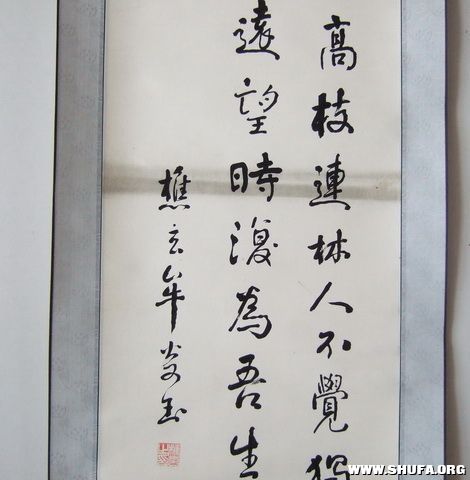 高枝連林人不覺獨
遠望時復為吾生
樵玄牟
WWW.SHUFA.ORG